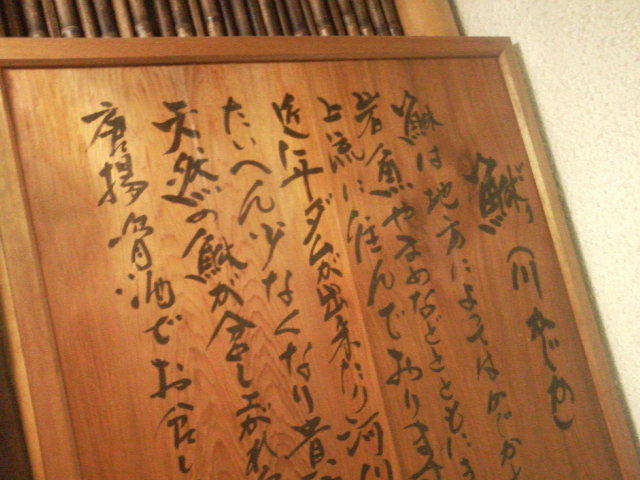 鰍（川かじか
鰍は地方によってはかじかと
岩魚やまめなどとともに
上流に住んでおります
近年ダムが出来たり河川
たいへん少なくなり貴
天然の鰍が召し上がれ
唐揚骨酒でお召し